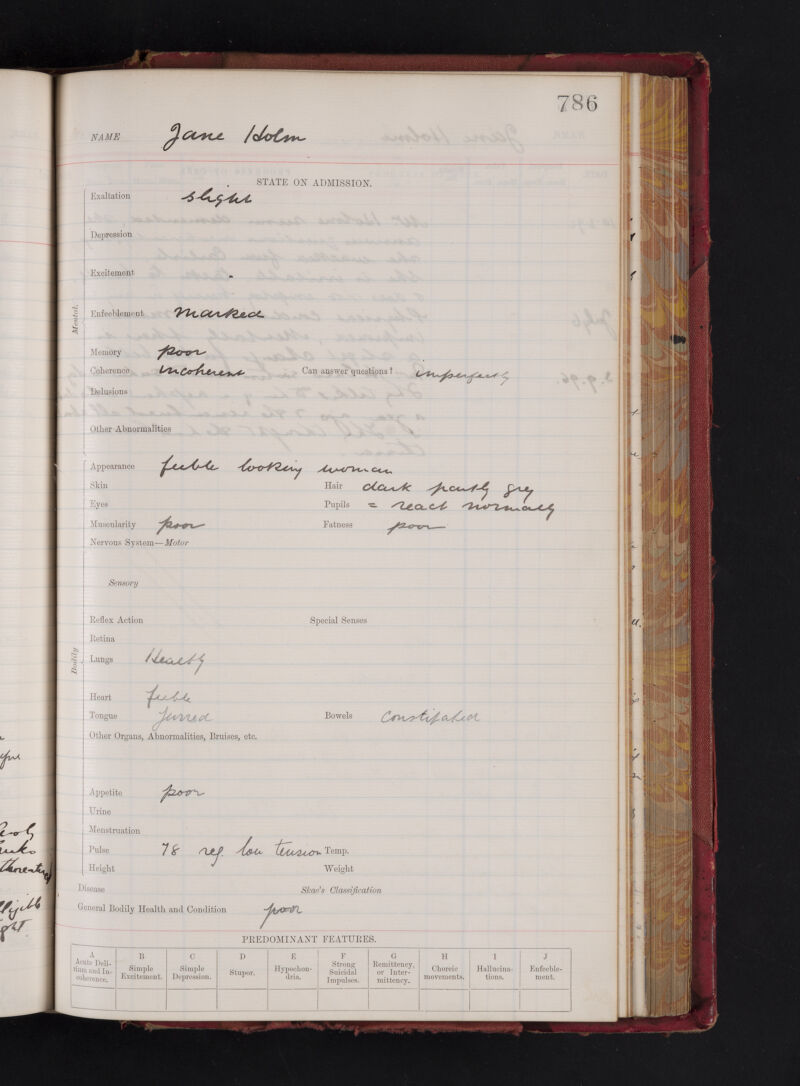 786
NAME Jane Holm
STATE ON ADMISSION.
Mental.
Exaltation slight
Depression
Excitement
Enfeeblement marked
Memory poor
Coherence incoherent Can answer questions? imperfectly
Delusions
Other Abnormalities
Bodily
Appearance feeble looking woman
Skin Hair dark partly grey
Eyes Pupils = react normally
Muscularity poor Fatness poor
Nervous System—Motor
Sensory
Reflex Action Special Senses
Retina
Lungs Healthy
Heart feeble
Tongue furred Bowels Constipated
Other Organs, Abnormalities, Bruises, etc.
Appetite poor
Urine
Menstruation
Pulse 78 reg. low tension Temp.
Height Weight
Disease Skae's Classification
General Bodily Health and Condition poor
PREDOMINANT FEATURES.
A B C D E F G H I J
Acute Delirium and Incoherence. Simple Excitement. Simple Depression. Stupor. Hypochondria. Strong Suicidal Impulses. Remittency, or Intermittency. Choreic movements. Hallucinations. Enfeeblement.